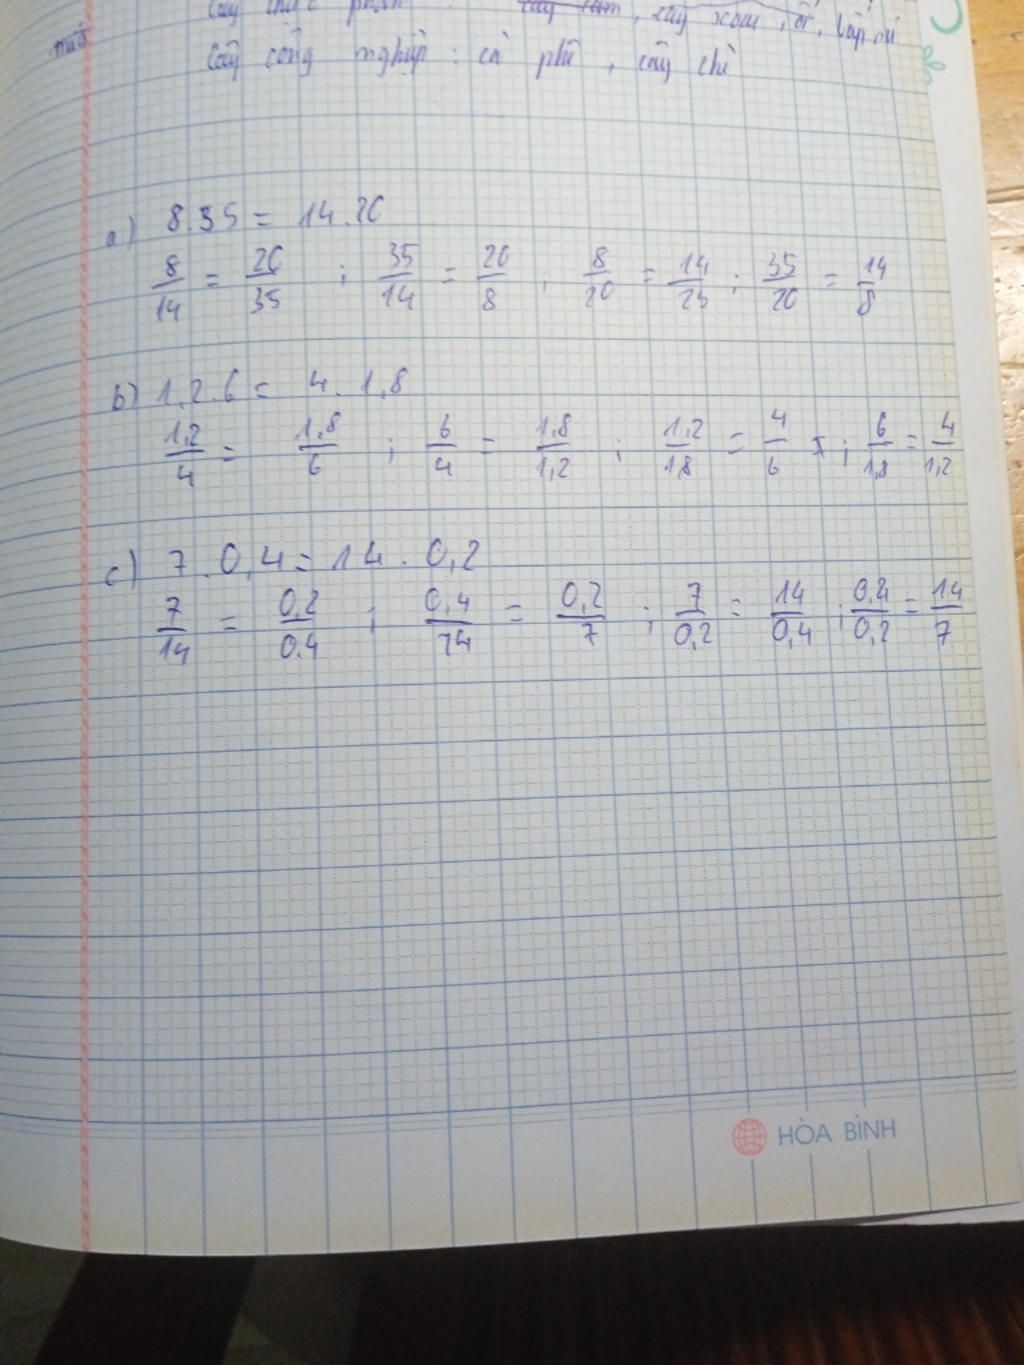 Cây công nghiệp : cà phê , cây chè
a) 8.35 = 14.20
8/14 = 20/35 ; 35/14 = 20/8 ; 8/20 = 14/23 ; 35/20 = 14/8
b) 1,2.6 = 4.1,8
1,2/4 = 1,8/6 ; 6/4 = 1,8/1,2 ; 1,2/1,8 = 4/6 ; 6/1,8 = 4/1,2
c) 7.0,4 = 14.0,2
7/14 = 0,2/0.4 ; 0,4/14 = 0,2/7 ; 7/0,2 = 14/0,4 ; 0,4/0,2 = 14/7
HÒA BÌNH